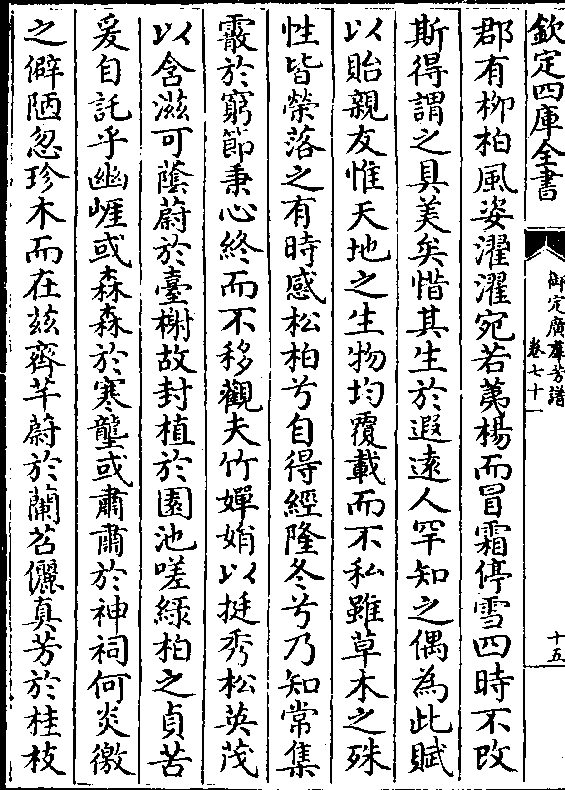 欽定四庫全書
御定廣羣芳譜
卷七十一
十五
郡有栁柏風姿濯濯宛若荑楊而冒霜停雪四時不改
斯得謂之具美矣惜其生於遐遠人罕知之偶為此賦
以貽親友惟天地之生物均覆載而不私雖草木之殊
性皆榮落之有時感松柏兮自得經隆冬兮乃知常集
霰於窮節秉心終而不移觀夫竹嬋娟以挺秀松英茂
以含滋可蔭蔚於臺榭故封植於園池嗟綠柏之貞苦
爰自託乎幽崕或森森於寒壟或肅肅於神祠何炎徼
之僻陋忽珍木而在兹齊芊蔚於蘭苕儷真芳於桂枝